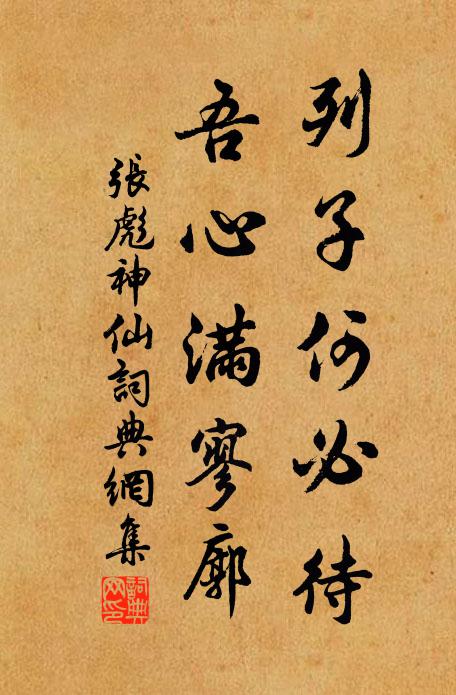 列子何必待
吾心滿寥廓
張彪神仙詞典網集
詞典網印